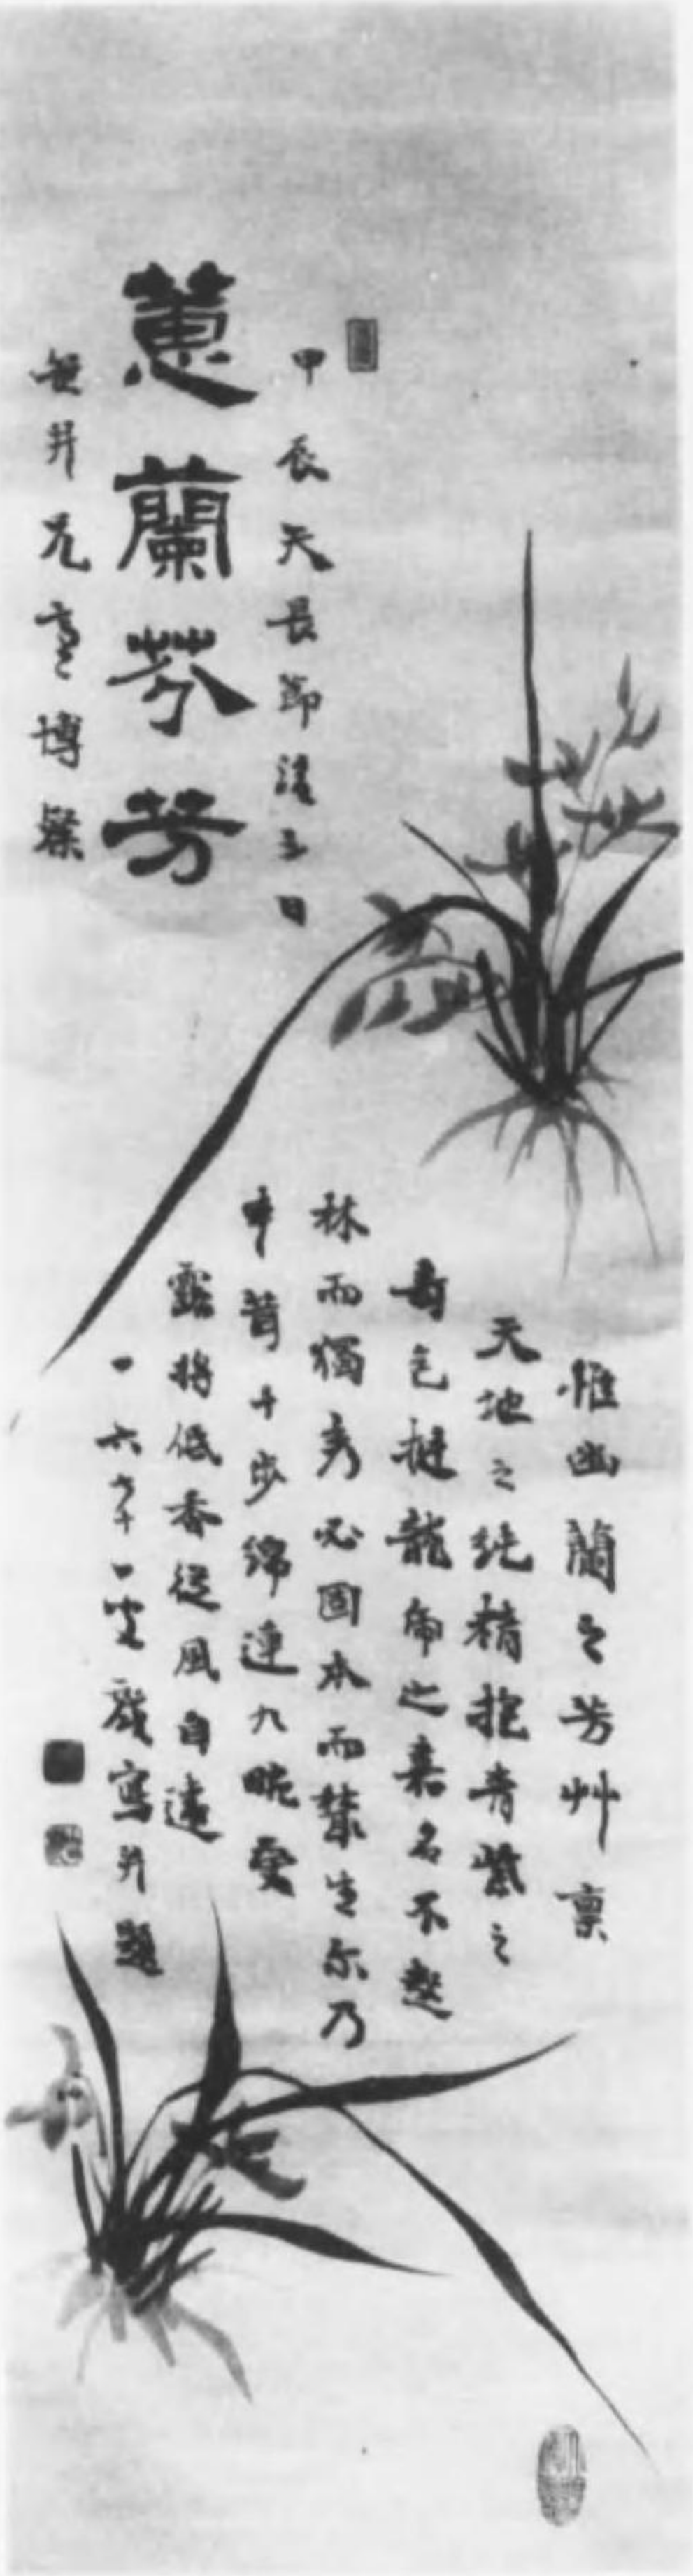 甲辰天長節後日
蕙蘭芬芳
博粲
惟幽蘭之芳艸稟
天地之純精抱青紫之
奇色挺龍虎之嘉名不起
林而獨秀必固本而叢生尔乃
丰茸十步綿連九畹受
露將低香從風自遠
一六七十一叟戲寫并題